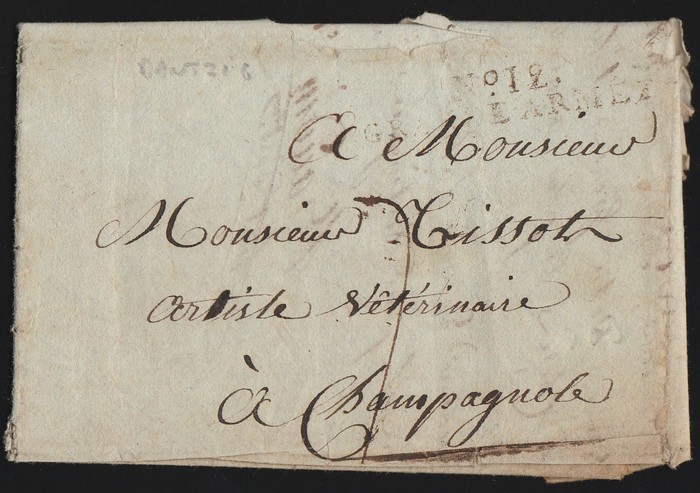 No 12.
GR    E ARMÉE
A Monsieur
Monsieur Tissot
artiste Vêtérinaire
à Champagnole